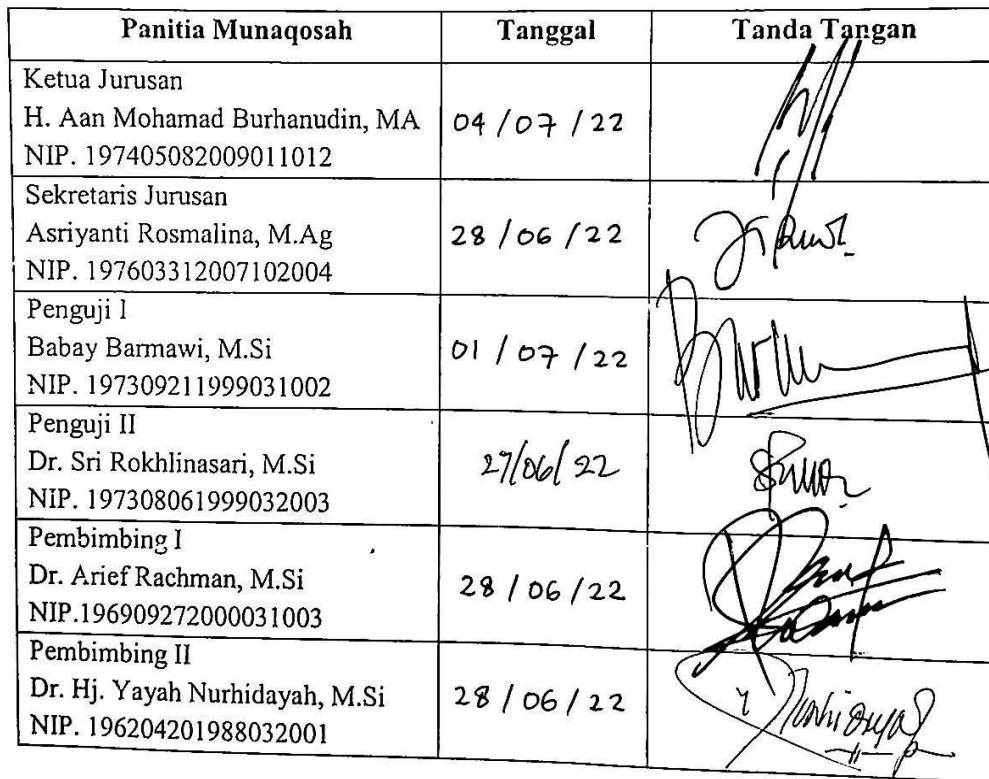 Panitia Munaqosah Tanggal Tanda Tangan
Ketua Jurusan
H. Aan Mohamad Burhanudin, MA 04/07/22
NIP. 197405082009011012
Sekretaris Jurusan
Asriyanti Rosmalina, M.Ag 28/06/22
NIP. 197603312007102004
Penguji I
Babay Barmawi, M.Si 01/07/22
NIP. 197309211999031002
Penguji II
Dr. Sri Rokhlinasari, M.Si 27/06/22
NIP. 197308061999032003
Pembimbing I
Dr. Arief Rachman, M.Si 28/06/22
NIP.196909272000031003
Pembimbing II
Dr. Hj. Yayah Nurhidayah, M.Si 28/06/22
NIP. 196204201988032001